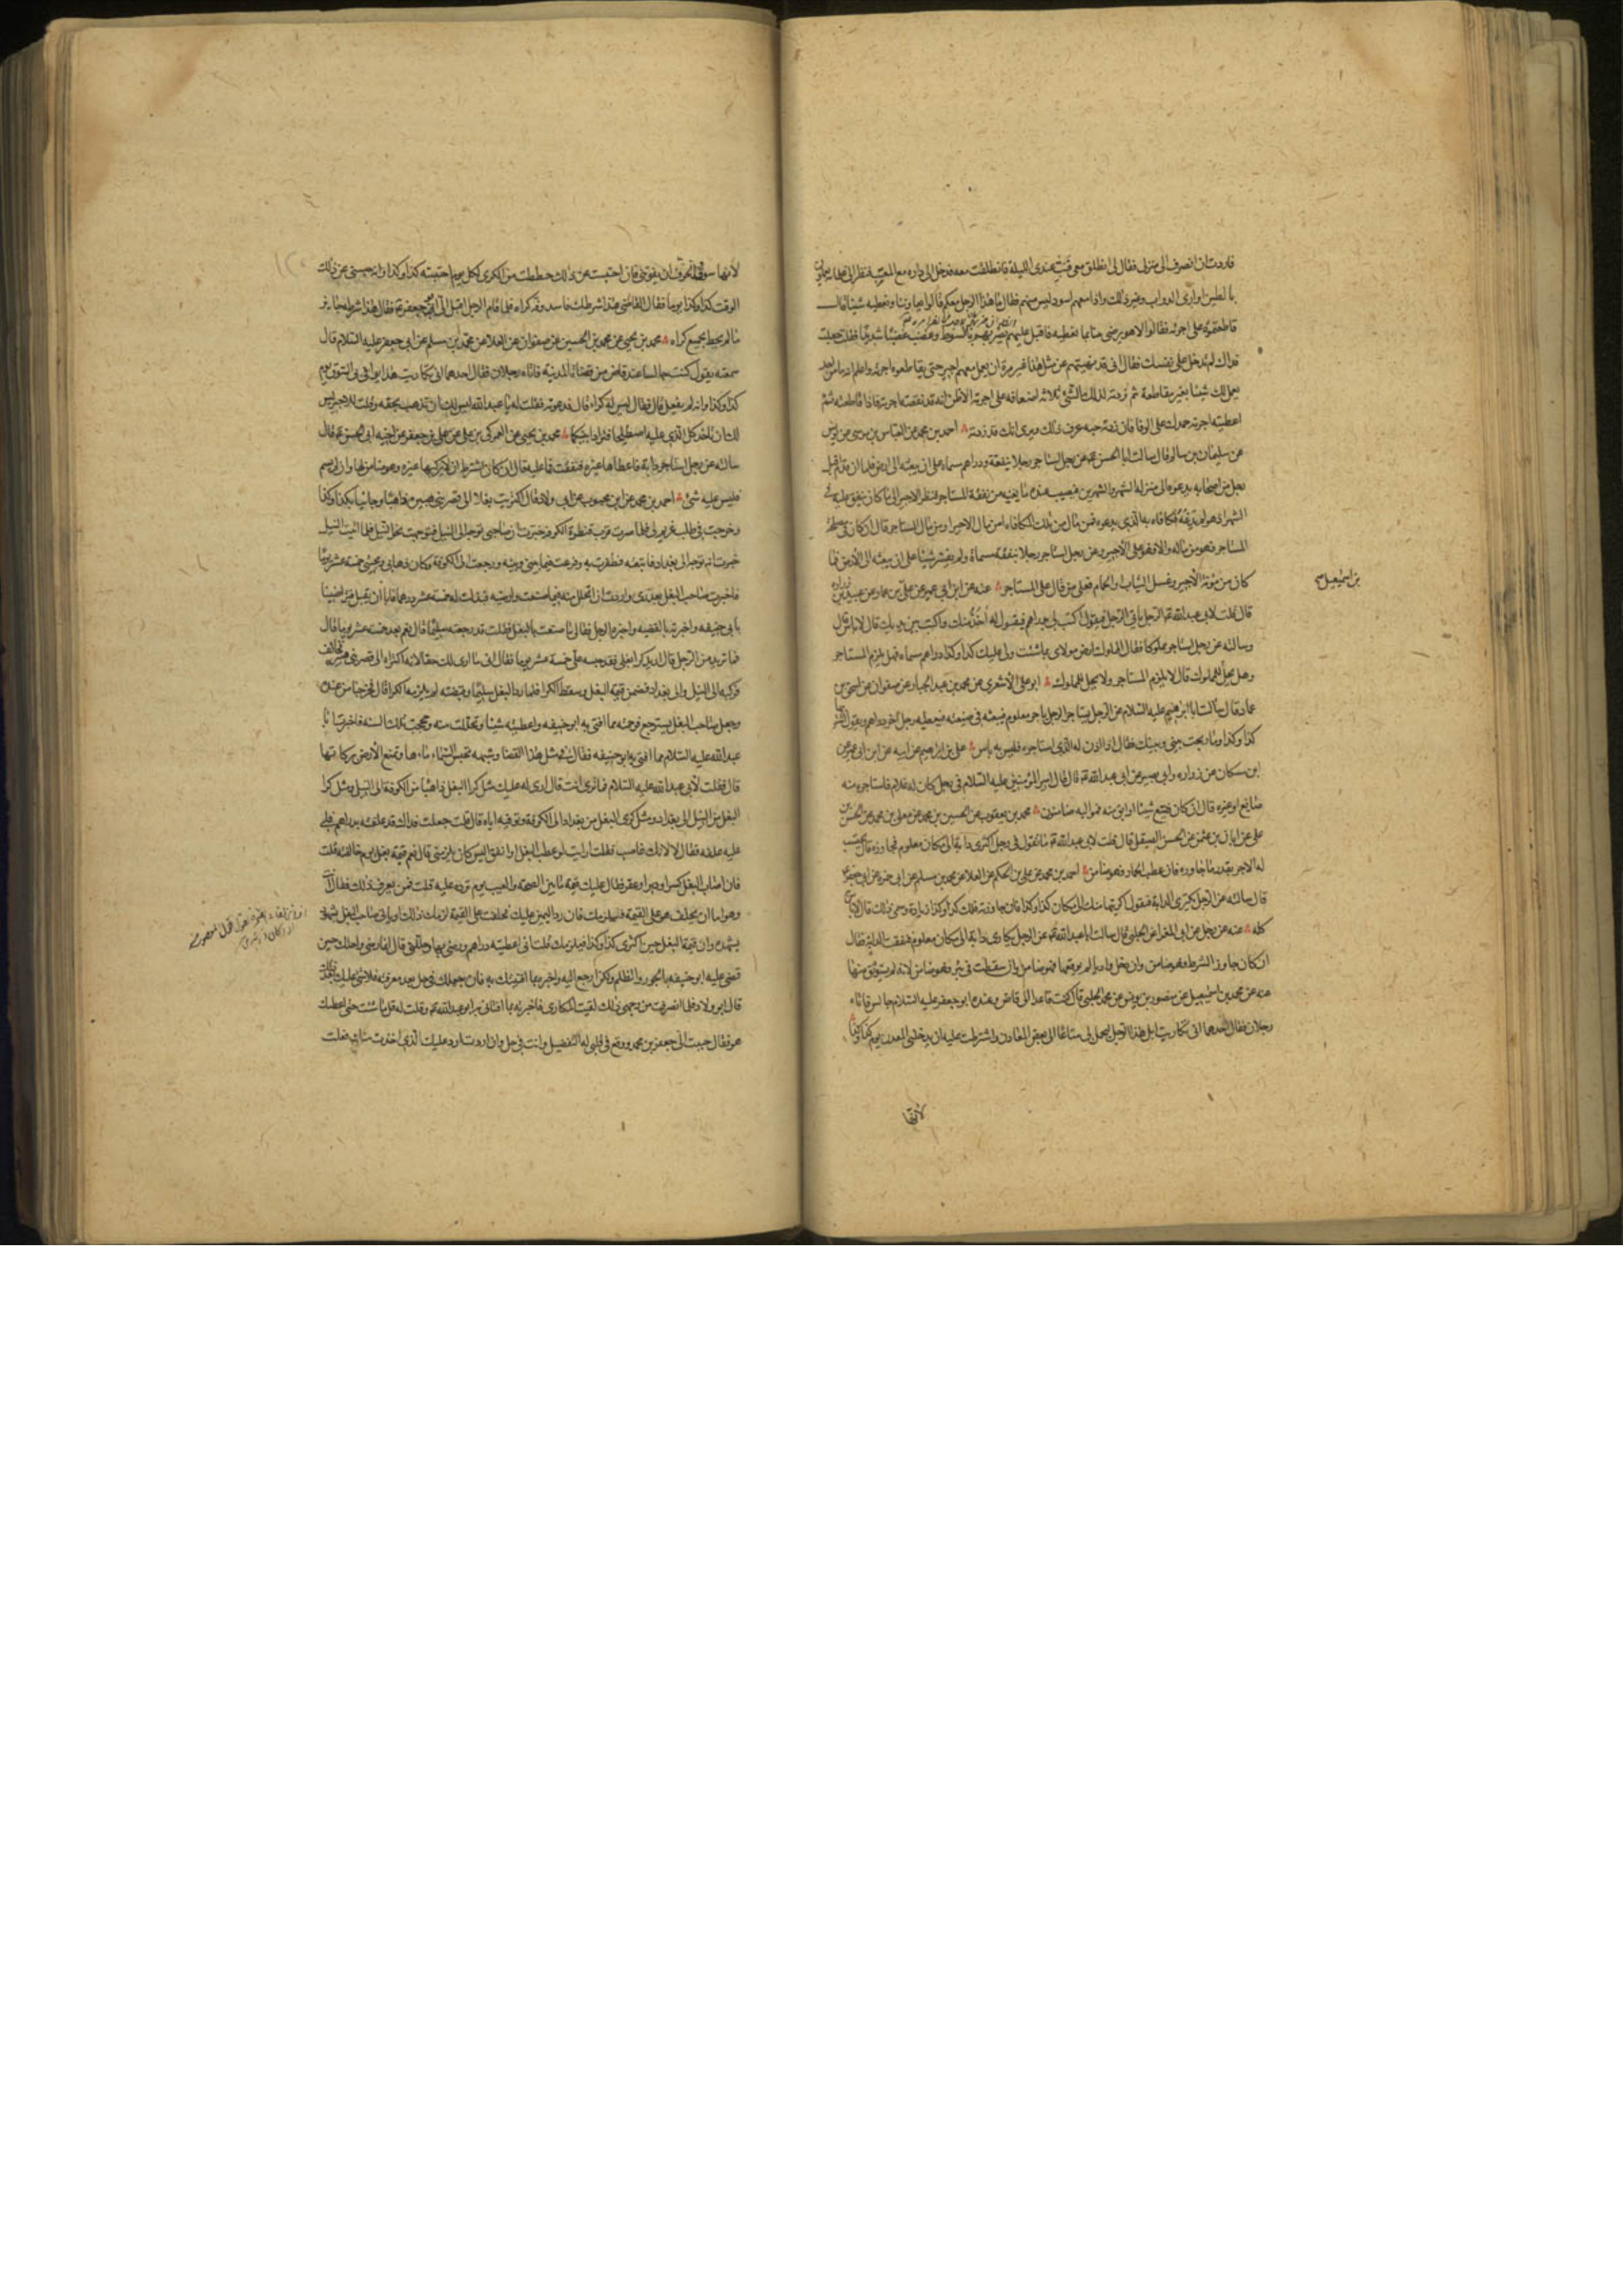 فاردت ان انصرف الى منزلى فقال لى انطلق معى فبت عندى الليلة فانطلقت معه فدخل الى داره مع المغيب فنظر الى غلمانه يعملون
بالطين اوارى الدواب وغير ذلك واذا معهم اسود ليس منهم فقال ما هذا الرجل معكم قالوا يعاوننا ونعطيه شيئا قال
قاطعتموه على اجرته فقالوا لا هو يرضى منا بما نعطيه فاقبل عليهم يضربهم بالسوط وغضب غضبا شديدا فقلت جعلت
فداك لم تدخل على نفسك فقال انى قد نهيتهم عن مثل هذا غير مرة ان يعمل معهم اجير حتى يقاطعوه اجرته واعلم انه ما من احد
يعمل لك شيئا بغير مقاطعة ثم زدته لذلك الشئ ثلاثة اضعافه على اجرته الا ظن انك قد نقصته اجرته فاذا قاطعته ثم
اعطيته اجرته حمدك على الوفا فان زدته حبه عرف ذلك ويرى انك قد زدته احمد بن محمد عن العباس بن موسى عن يونس
عن سليمان بن سالم قال سالت ابا الحسن عن رجل استاجر رجلا بنفقة ودراهم مسماة على ان يبعثه الى ارض فلما ان قدم اقبل
رجل من اصحابه يدعوه الى منزله الشهر والشهرين فيصيب عنده ما يغنيه من نفقة المستاجر فنظر الاجير الى ما كان ينفق عليه فى
الشهر اذا هو لم يدعه فكافاه به الذى يدعوه فمن مال من تلك المكافاه امن مال الاجير او من مال المستاجر قال ان كان فى مصلحة
المستاجر فهو من ماله والا فهو على الاجير وعن رجل استاجر رجلا بنفقة مسماة ولم يفسر شيئا على ان يبعثه الى ارض فما
كان من مؤنة الاجير وغسل الثياب والحمام فعلى من قال على المستاجر عنه عن ابن ابى عمير عن على بن عن عبيد بن زرارة
بن اسمعيل
قال قلت لابى عبد الله الرجل ياتى الرجل فيقول اكتب لى بدراهم فيقول له آخذ منك واكتب بين يديك قال لا باس قال
وسالته عن رجل استاجر مملوكا فقال المملوك ارض مولاى بما شئت ولى عليك كذا وكذا دراهم مسماه فهل يلزم المستاجر
وهل يحل للمملوك قال لا يلزم المستاجر ولا يحل للمملوك ابو على الاشعرى عن محمد بن عبد الجبار عن صفوان عن اسحق بن
عمار قال سالت ابا ابرهيم عليه السلام عن الرجل يستاجر الرجل باجر معلوم فيبعثه فى ضيعته فيعطيه رجل آخر دراهم ويقول اشتر
كذا وكذا وما ربحت بينى وبينك فقال اذا اذن له الذى استاجره فليس به باس على بن ابراهيم عن ابيه عن ابن ابى عمير عن
ابن مسكان عن زراره وابى بصير عن ابى عبد الله قال قال امير المؤمنين عليه السلام فى رجل كان له غلام فاستاجره منه
صايغ او غيره قال ان كان ضيع شيئا او ابق منه فمواليه ضامنون محمد بن يعقوب عن الحسين بن محمد عن معلى بن محمد عن الحسن بن
على عن ابان بن عثمن عن الحسن الصيقل قال قلت لابى عبد الله ما تقول فى رجل اكترى دابة الى مكان معلوم فجاوزه قال يحتسب
له الاجر بقدر ما جاوزه فان عطب الحمار فهو ضامن احمد بن محمد عن على بن الحكم عن العلا عن محمد بن مسلم عن ابى حمزه عن ابى جعفر
قال سالته عن الرجل يكترى الدابة فيقول اكتريتها منك الى مكان كذا وكذا فان جاوزته فلك كذا وكذا زيادة وسمى ذلك قال لا باس
كله عنه عن رجل عن ابى المغرا عن الحلبى قال سالت ابا عبد الله عن الرجل يكارى دابة الى مكان معلوم فنفقت الدابة فقال
ان كان جاوز الشرط فهو ضامن وان دخل واديا لم يوثقها فهو ضامن وان سقطت فى بئر فهو ضامن لانه لم يستوثق منها
عنه عن محمد بن اسمعيل عن منصور بن يونس عن محمد الحلبى قال كنت قاعدا الى قاض وعنده ابو جعفر عليه السلام جالس فاتاه
رجلان فقال احدهما انى تكاريت ابل هذا الرجل ليحمل لى متاعا الى بعض المعادن واشترطت عليه ان يدخلنى المعدن يوم كذا وكذا
لانها
لانها سوق اتخوف ان يفوتنى فان احتبست عن ذلك حططت من الكرى لكل يوم احتبسته كذا وكذا وانه حبسنى عن ذلك
الوقت كذا وكذا يوما فقال القاضى هذا شرط فاسد وفه كراه فلما قام الرجل اقبل الى ابو جعفر فقال هذا شرط جايز
ما لم يحط بجميع كراه محمد بن يحيى عن محمد بن الحسين عن صفوان عن العلا عن محمد بن مسلم عن ابى جعفر عليه السلام قال
سمعته يقول كنت جالسا عند قاض من قضاة المدينة فاتاه رجلان فقال احدهما انى تكاريت هذا يوافى بى السوق يوم
كذا وكذا وانه لم يفعل قال فقال ليس له كراء قال فدعوته فقلت له يا عبد الله ليس لك ان تذهب بحقه وقلت للاخر ليس
لك ان تاخذ كل الذى عليه اصطلحا فترادا بينكما محمد بن يحيى عن العمركى بن على عن على بن جعفر عن اخيه ابى الحسن قال
سالته عن رجل استاجر دابة فاعطاها غيره فنفقت فما عليه قال ان كان اشترط ان لا يركبها غيره فهو ضامن لها وان لم يسم
فليس عليه شئ احمد بن محمد عن ابن محبوب عن ابى ولاد قال اكتريت بغلا الى قصر بنى هبيره ذاهبا وجائيا بكذا وكذا
وخرجت فى طلب غريم لى فلما صرت قرب قنطرة الكوفه خبرت ان صاحبى توجه الى النيل فتوجهت نحو النيل فلما اتيت النيل
خبرت انه توجه الى بغداد فاتبعته فظفرت به وفرغت فيما بينى وبينه ورجعت الى الكوفة وكان ذهابى ومجيئى خمسة عشر يوما
فاخبرت صاحب البغل بعذرى واردت ان اتحلل منه فيما صنعت وارضيه فبذلت له خمسة عشر درهما فابا ان يقبل فتراضينا
بابى حنيفه واخبرته بالقضيه واخبره الرجل فقال لى ما صنعت بالبغل فقلت قد رجعته سليما قال نعم بعد خمسة عشر يوما قال
فما تريد من الرجل قال اريد كرا بغلى فقد حبسه على خمسة عشر يوما فقال انى ما ارى لك حقا لانه اكتراه الى قصر بنى هبيره فخالف
فركبه الى النيل والى بغداد فضمن قيمة البغل وسقط الكرا فلما رد البغل سليما وقبضته لم يلزمه الكرا قال فخرجنا من عنده
وجعل صاحب البغل يسترجع فرحمته مما افتى به ابو حنيفه واعطيته شيئا وتحللت منه وحججت تلك السنه فاخبرت ابا
عبد الله عليه السلام مما افتى به ابو حنيفه فقال فى مثل هذا القضا وشبهه تحبس السماء ماءها وتمنع الارض بركاتها
قال فقلت لابى عبد الله عليه السلام فما ترى انت قال ارى له عليك مثل كرا البغل ذاهبا من الكوفة الى النيل ومثل كرا
البغل من النيل الى بغداد ومثل كرى البغل من بغداد الى الكوفة وتوفيه اياه قال قلت جعلت فداك قد علفته بدراهم فلى
عليه علفه فقال لا لانك غاصب فقلت ارايت لو عطب البغل او انفق اليس كان يلزمنى قال نعم قيمة بغل يوم خالفته قلت
فان اصاب البغل كسر او دبر او عقر فقال عليك قيمة ما بين الصحة والعيب يوم ترده عليه قلت فمن يعرف ذلك قال انت
وهو اما ان يحلف هو على القيمة فيلزمك فان رد اليمين عليك فحلفت على القيمة لزمك ذلك او ياتى صاحب البغل بشهود
يشهدون ان قيمة البغل حين اكترى كذا وكذا فيلزمك قلت انى اعطيته دراهم ورضى بها وحللنى قال انما رضى واحلك حين
قضى عليه ابو حنيفه بالجور والظلم ولكن ارجع اليه واخبره بما افتيتك به فان جعلك فى حل بعد معرفته فلا شئ عليك بعد ذلك
قال ابو ولاد فلما انصرفت من وجهى ذلك لقيت المكارى فاخبرته بما افتانى به ابو عبد الله وقلت له قل ما شئت حتى اعطيك
هو فقال حببت الى جعفر بن محمد ووقع فى قلبى له التفضيل وانت فى حل وان اردت ان ارد عليك الذى اخذت منك فعلت